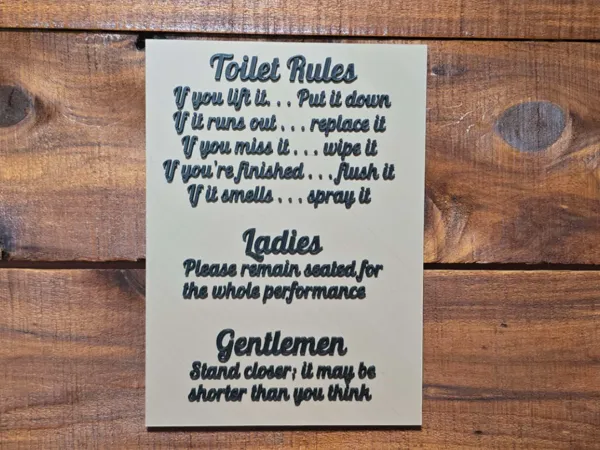 Toilet Rules
If you lift it. . . Put it down
If it runs out . . . replace it
If you miss it . . . wipe it
If you're finished . . . flush it
If it smells . . . spray it
Ladies
Please remain seated for
the whole performance
Gentlemen
Stand closer; it may be
shorter than you think